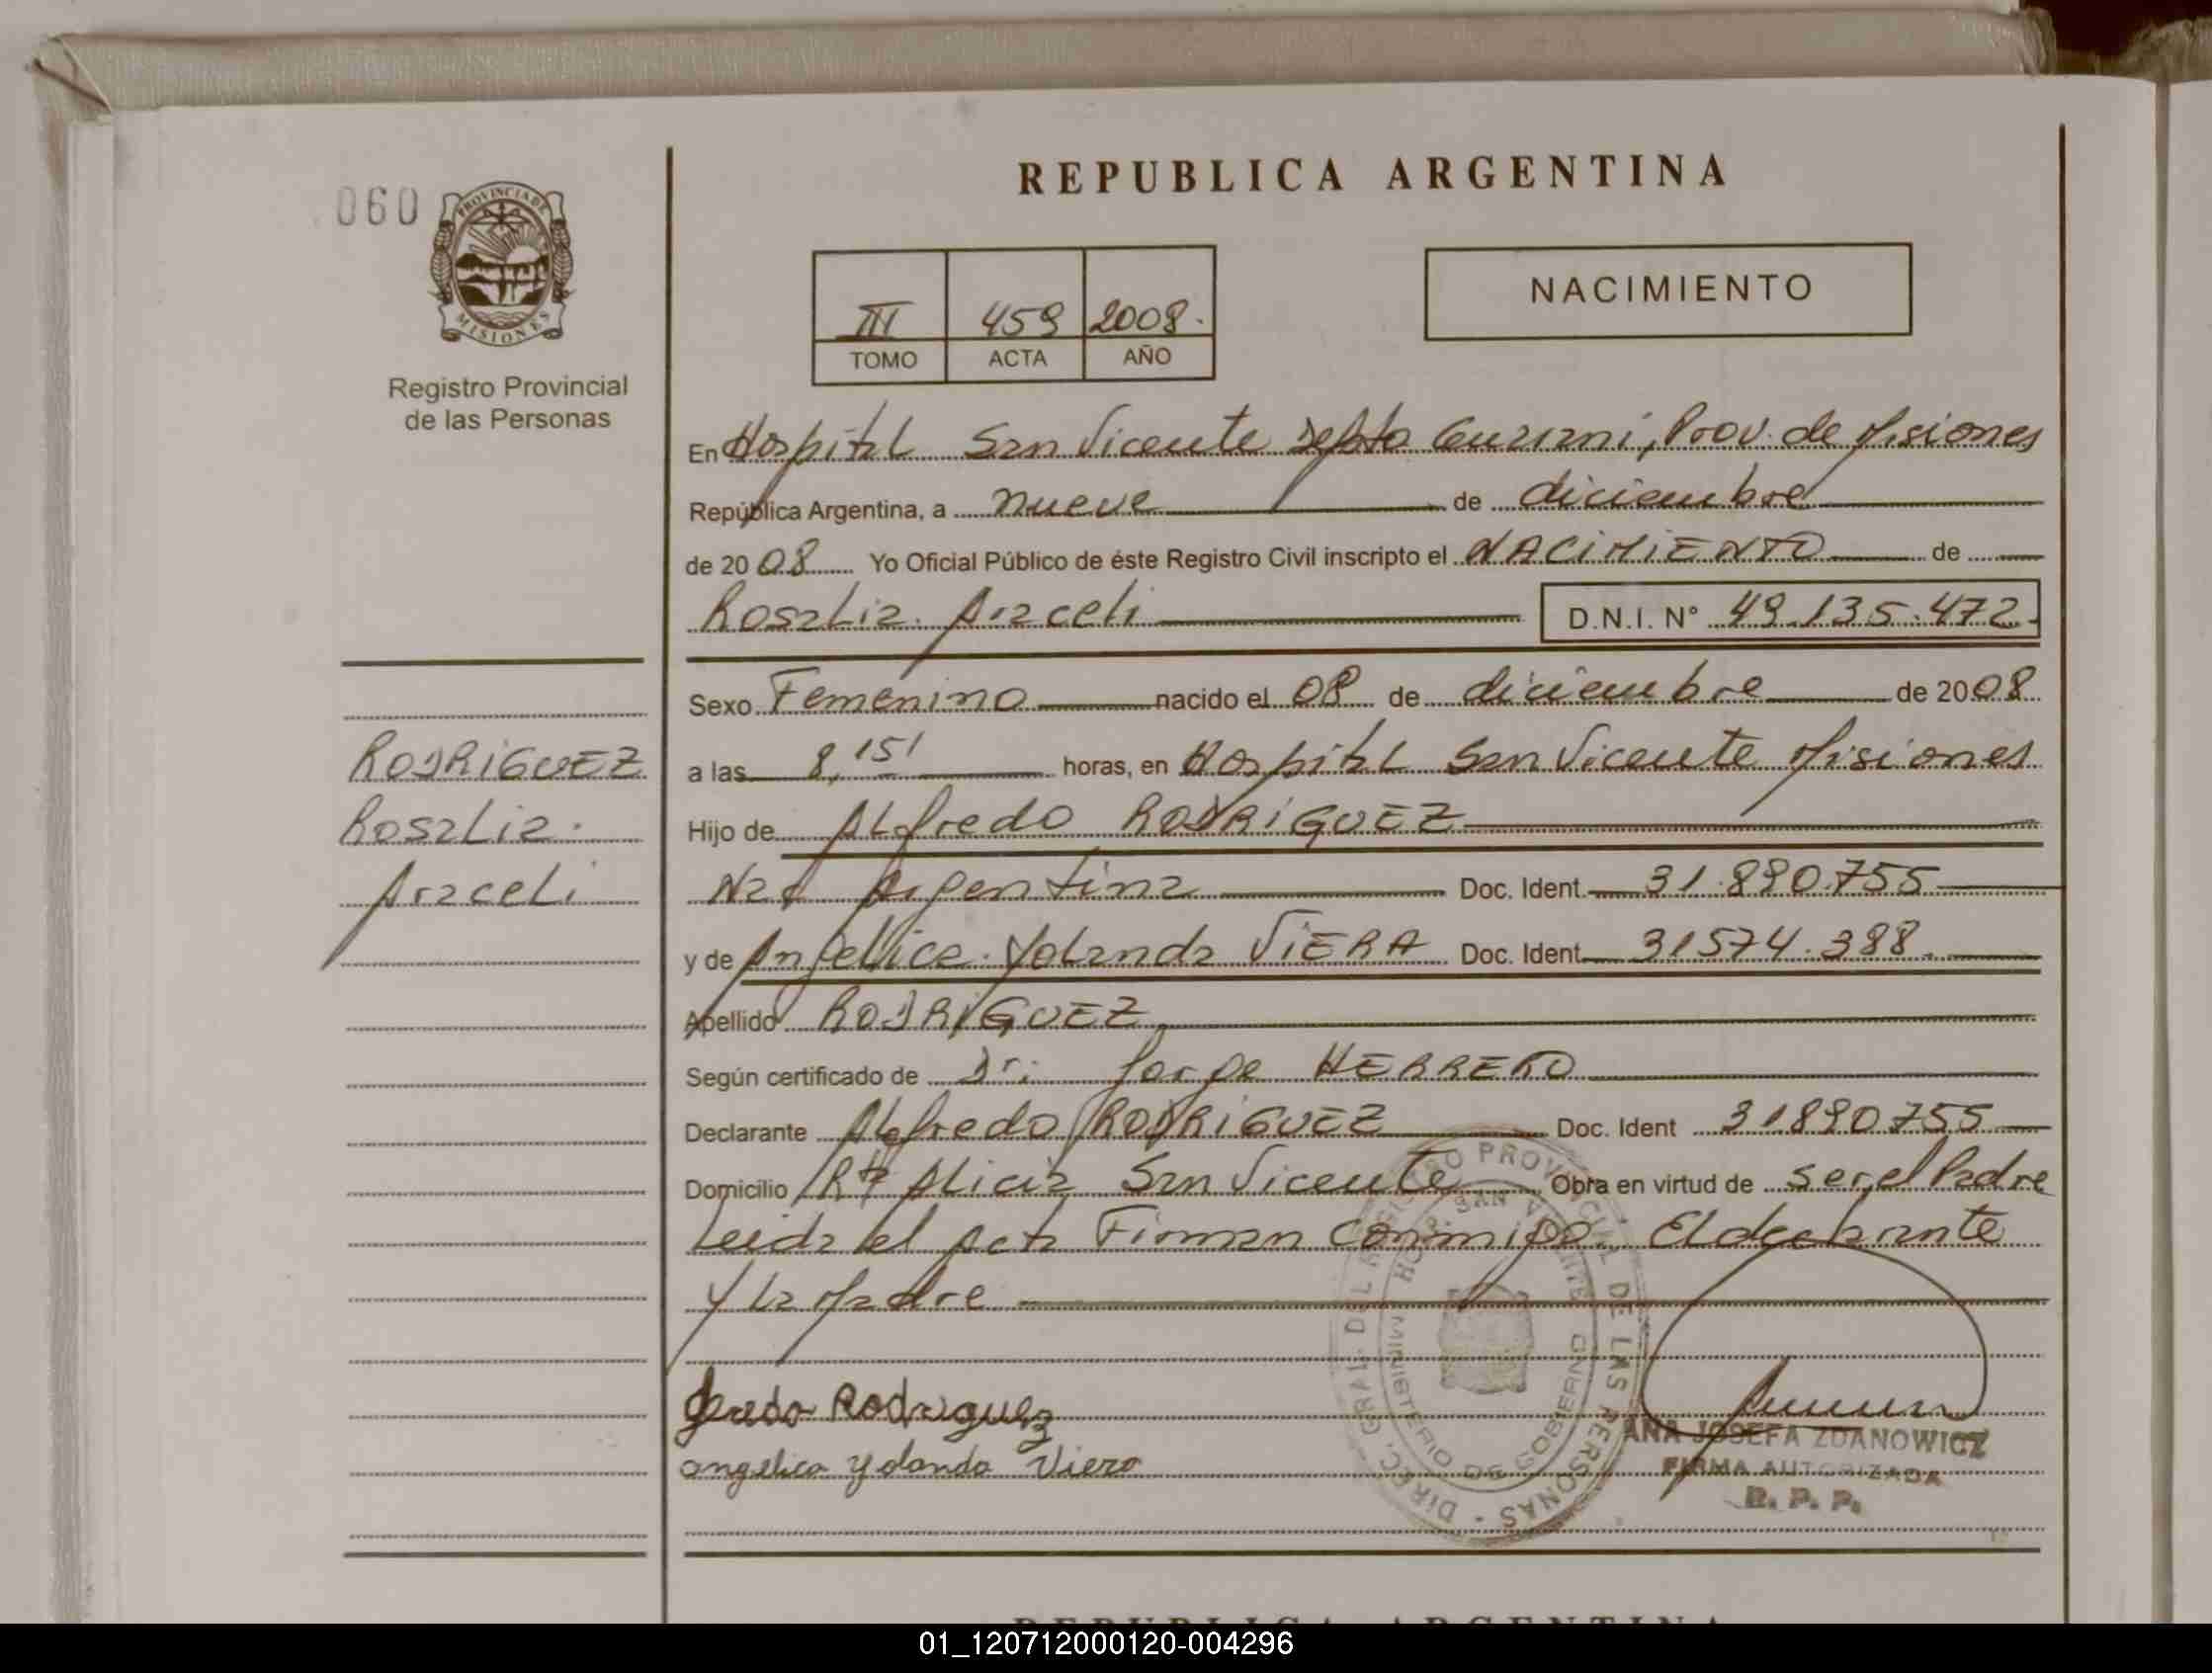 REPUBLICA ARGENTINA
060
PROVINCIA DE
MISIONES
Registro Provincial
de las Personas
NACIMIENTO
III 459 2008.
TOMO ACTA AÑO
En Hospital San Vicente Depto Guarani, Prov. de Misiones
República Argentina, a nueve de diciembre
de 2008 Yo Oficial Público de éste Registro Civil inscripto el NACIMIENTO de
Rosalia Araceli D.N.I. N° 49.135.472.
Sexo Femenino nacido el 08 de diciembre de 2008
RODRIGUEZ
Rosalia
Araceli
a las 8,15' horas, en Hospital San Vicente Misiones
Hijo de Alfredo RODRIGUEZ
Nac Argentina Doc. Ident. 31.890.755
y de Angelica Yolanda VIERA Doc. Ident. 31574.388.
Apellido RODRIGUEZ
Según certificado de Dr. Jorge HERRERO
Declarante Alfredo RODRIGUEZ Doc. Ident 31890755
Domicilio Alicia San Vicente Obra en virtud de ser el Padre
Leida el Acta Firman conmigo El declarante
y la Madre
Rodriguez
angelica Yolanda Viera
DIREC. GRAL. DEL REGISTRO PROVINCIAL DE LAS PERSONAS
HOSP. SAN VICENTE
MINISTERIO DE GOBIERNO
ANA JOSEFA ZDANOWICZ
FIRMA AUTORIZADA
R. P. P.
REPUBLICA ARGENTINA
01_120712000120-004296